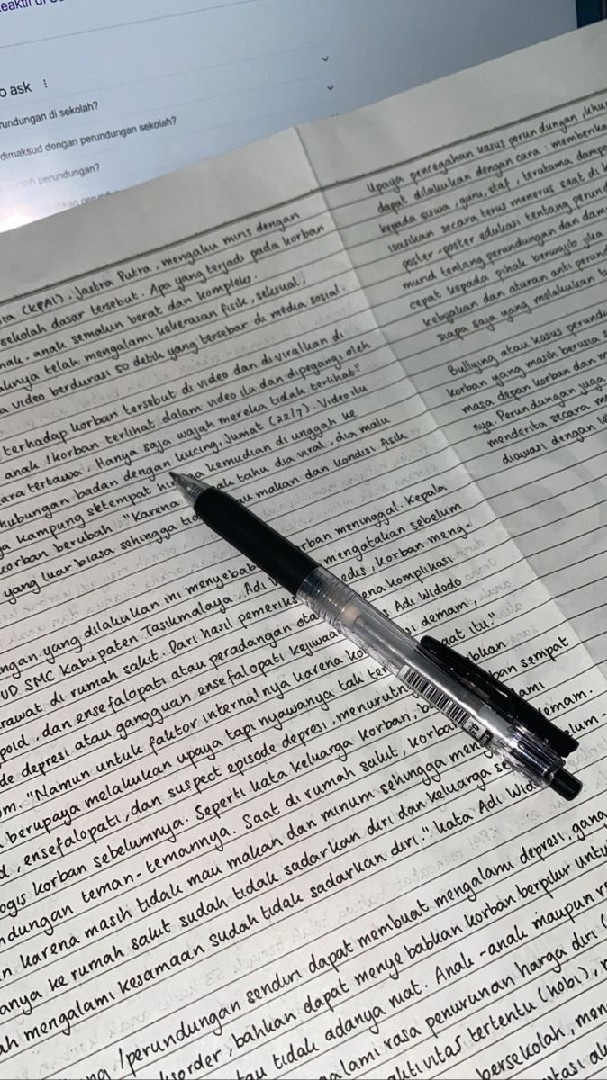 o ask
rundungan di sekolah?
dimaksud dengan perundungan sekolah?
perundungan?
ta (KPAI), Jasra Putra, mengaku miris dengan
sekolah dasar tersebut. Apa yang terjadi pada korban
anak-anak semakin berat dan kompleks.
telah mengalami kekerasan fisik, seksual,
a video berdurasi 50 detik yang tersebar di media sosial.
terhadap korban tersebut di video dan diviralkan di
anak / korban terlihat dalam video itu dan dipegangi oleh
ara tertawa. Hanya saja wajah mereka tidak terlihat"
hubungan badan dengan kucing, Jumat (22/7). Video itu
a kampung setempat hingga kemudian di unggah ke
korban berubah. "Karena tahu dia viral, dia malu
yang luar biasa sehingga mau makan dan kondisi fisik
ngan yang dilakukan ini menyebab korban meninggal. Kepala
UD SMC Kabupaten Tasikmalaya, Adi mengatakan sebelum
rawat di rumah sakit. Dari hasil pemeriks medis, korban meng-
poid, dan ensefalopati atau peradangan ota karena komplikasi
de depresi atau gangguan ensefalopati kejiwaan Adi Widodo
om. "Namun untuk faktor internalnya karena ko demam,
berupaya melakukan upaya tapi nyawanya tak saat itu."
, ensefalopati, dan suspect episode depresi, menurutn
ogis korban sebelumnya. Seperti kata keluarga korban, ban sempat
ndungan teman-temannya. Saat di rumah sakit, korba alami
n karena masih tidak mau makan dan minum sehingga men
anya ke rumah sakit sudah tidak sadarkan diri dan keluarga se
ah mengalami kesamaan sudah tidak sadarkan diri." kata Adi Wid
/perundungan sendiri dapat membuat mengalami depresi, gang
sorder, bahkan dapat menyebabkan korban berpikir untu
tau tidak adanya niat. Anak-anak maupun r
alami rasa penurunan harga diri
aktivitas tertentu (hobi),
bersekolah, men
Upaya pencegahan kasus perundungan, khu
dapat dilakukan dengan cara: memberika
kepada siswa, guru, staf, terutama dampa
secara terus menerus saat di
poster-poster edukasi tentang perun
murid tentang perundungan dan dam
cepat kepada pihak berwajib jika
kebijakan dan aturan anti perun
siapa saja yang melakukan
Bullying atau kasus perundu
korban yang masih berusia
masa depan korban dan m
nya. Perundungan juga
menderita secara m
diawasi dengan